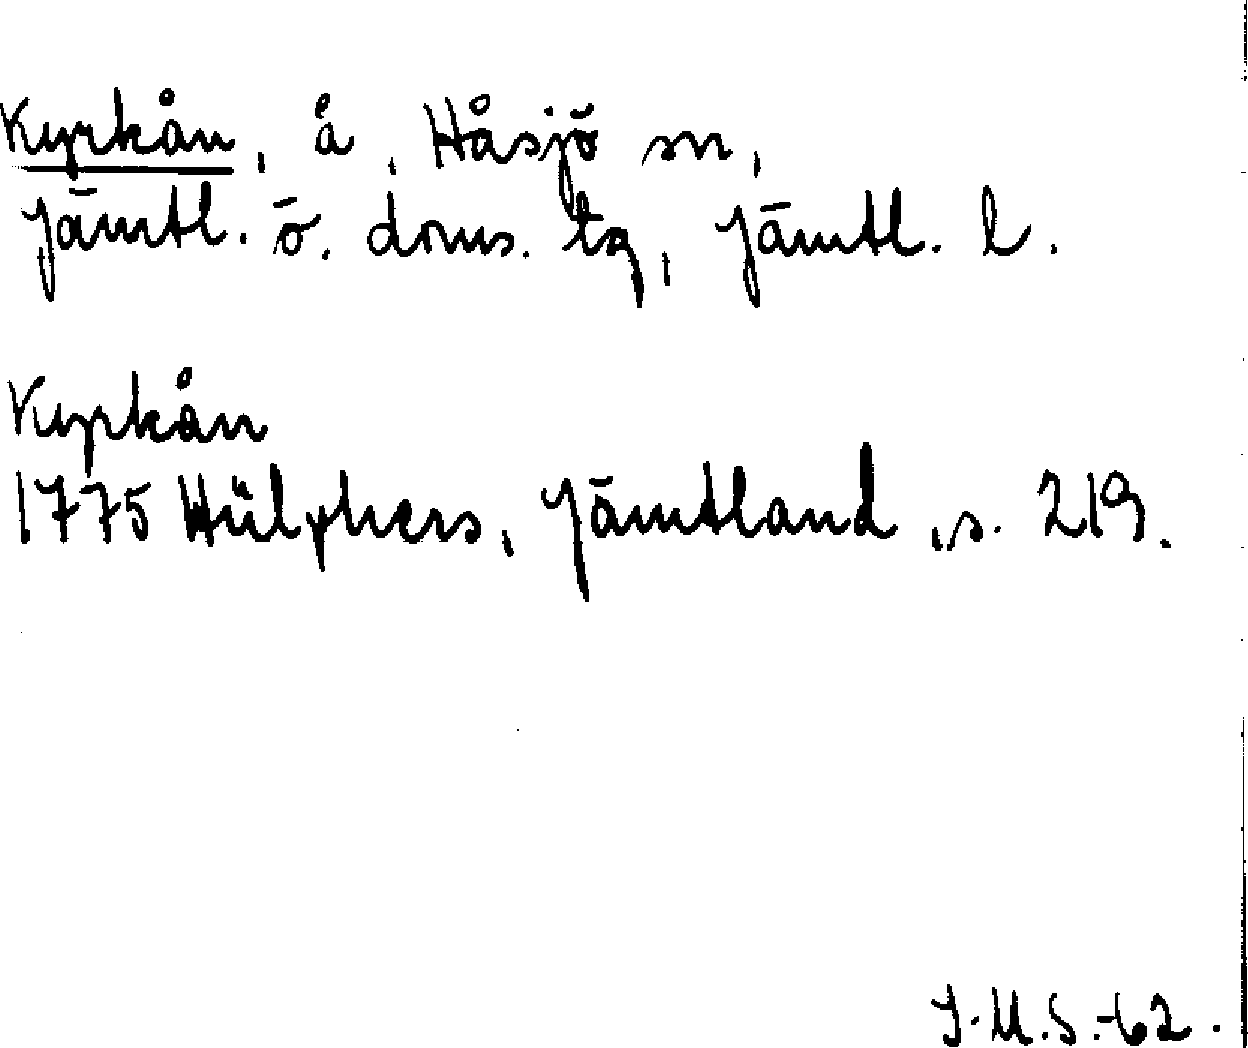 Kyrkån, å, Håsjö sn,
Jämtl. ö. doms. tg, Jämtl. l.
Kyrkån
1775 Hülphers, Jämtland, s. 219.
I.M.S.-62.